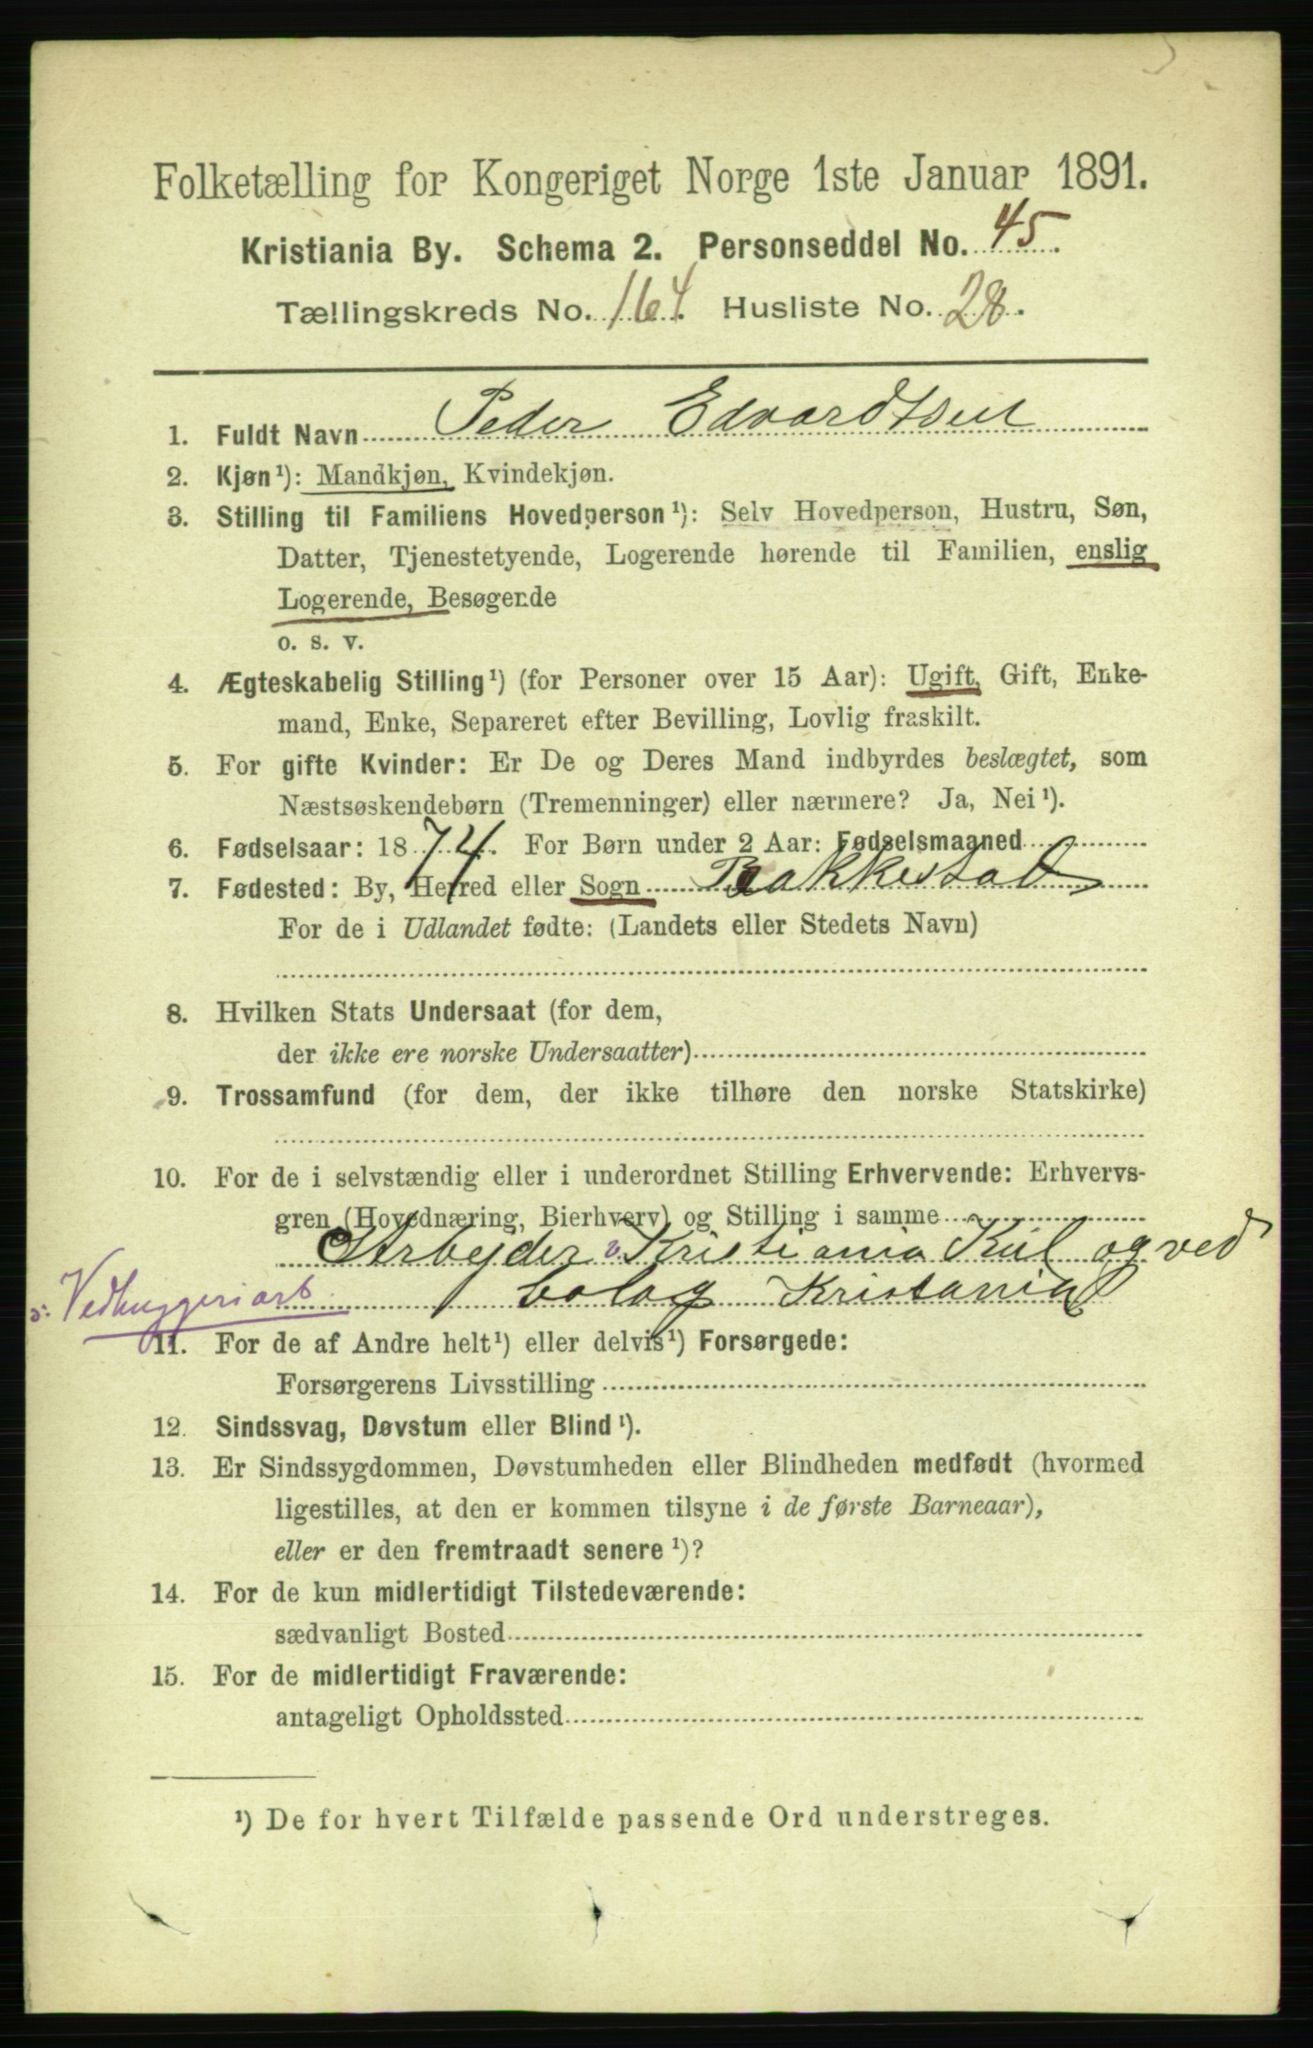 Folketælling for Kongeriget Norge 1ste Januar 1891.
Kristiania By. Schema 2. Personseddel No. 45.
Tællingskreds No. 164. Husliste No. 28.
1. Fuldt Navn Peder Edvardtsen
2. Kjøn¹): Mandkjøn, Kvindekjøn.
3. Stilling til Familiens Hovedperson¹): Selv Hovedperson, Hustru, Søn,
Datter, Tjenestetyende, Logerende hørende til Familien, enslig
Logerende, Besøgende
o. s. v.
4. Ægteskabelig Stilling¹) (for Personer over 15 Aar): Ugift, Gift, Enke-
mand, Enke, Separeret efter Bevilling, Lovlig fraskilt.
5. For gifte Kvinder: Er De og Deres Mand indbyrdes beslægtet, som
Næstsøskendebørn (Tremenninger) eller nærmere? Ja, Nei¹).
6. Fødselsaar: 1874. For Børn under 2 Aar: Fødselsmaaned
7. Fødested: By, Herred eller Sogn Rakkestad
For de i Udlandet fødte: (Landets eller Stedets Navn)
8. Hvilken Stats Undersaat (for dem,
der ikke ere norske Undersaatter)
9. Trossamfund (for dem, der ikke tilhøre den norske Statskirke)
10. For de i selvstændig eller i underordnet Stilling Erhvervende: Erhvervs-
gren (Hovednæring, Bierhverv) og Stilling i samme
Arbejder v. Kristiania Kul og ved
bolag Kristania
ɔ: Vedhuggeriarb.
11. For de af Andre helt¹) eller delvis¹) Forsørgede:
Forsørgerens Livsstilling
12. Sindssvag, Døvstum eller Blind¹).
13. Er Sindssygdommen, Døvstumheden eller Blindheden medfødt (hvormed
ligestilles, at den er kommen tilsyne i de første Barneaar),
eller er den fremtraadt senere¹)?
14. For de kun midlertidigt Tilstedeværende:
sædvanligt Bosted
15. For de midlertidigt Fraværende:
antageligt Opholdssted
¹) De for hvert Tilfælde passende Ord understreges.